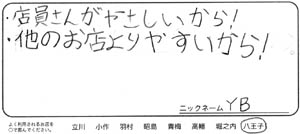 ・店員さんがやさしいから!
・他のお店よりやすいから!
ニックネーム YB
よく利用されるお店を
○で囲んでください。 立川 小作 羽村 昭島 青梅 高幡 堀之内 八王子